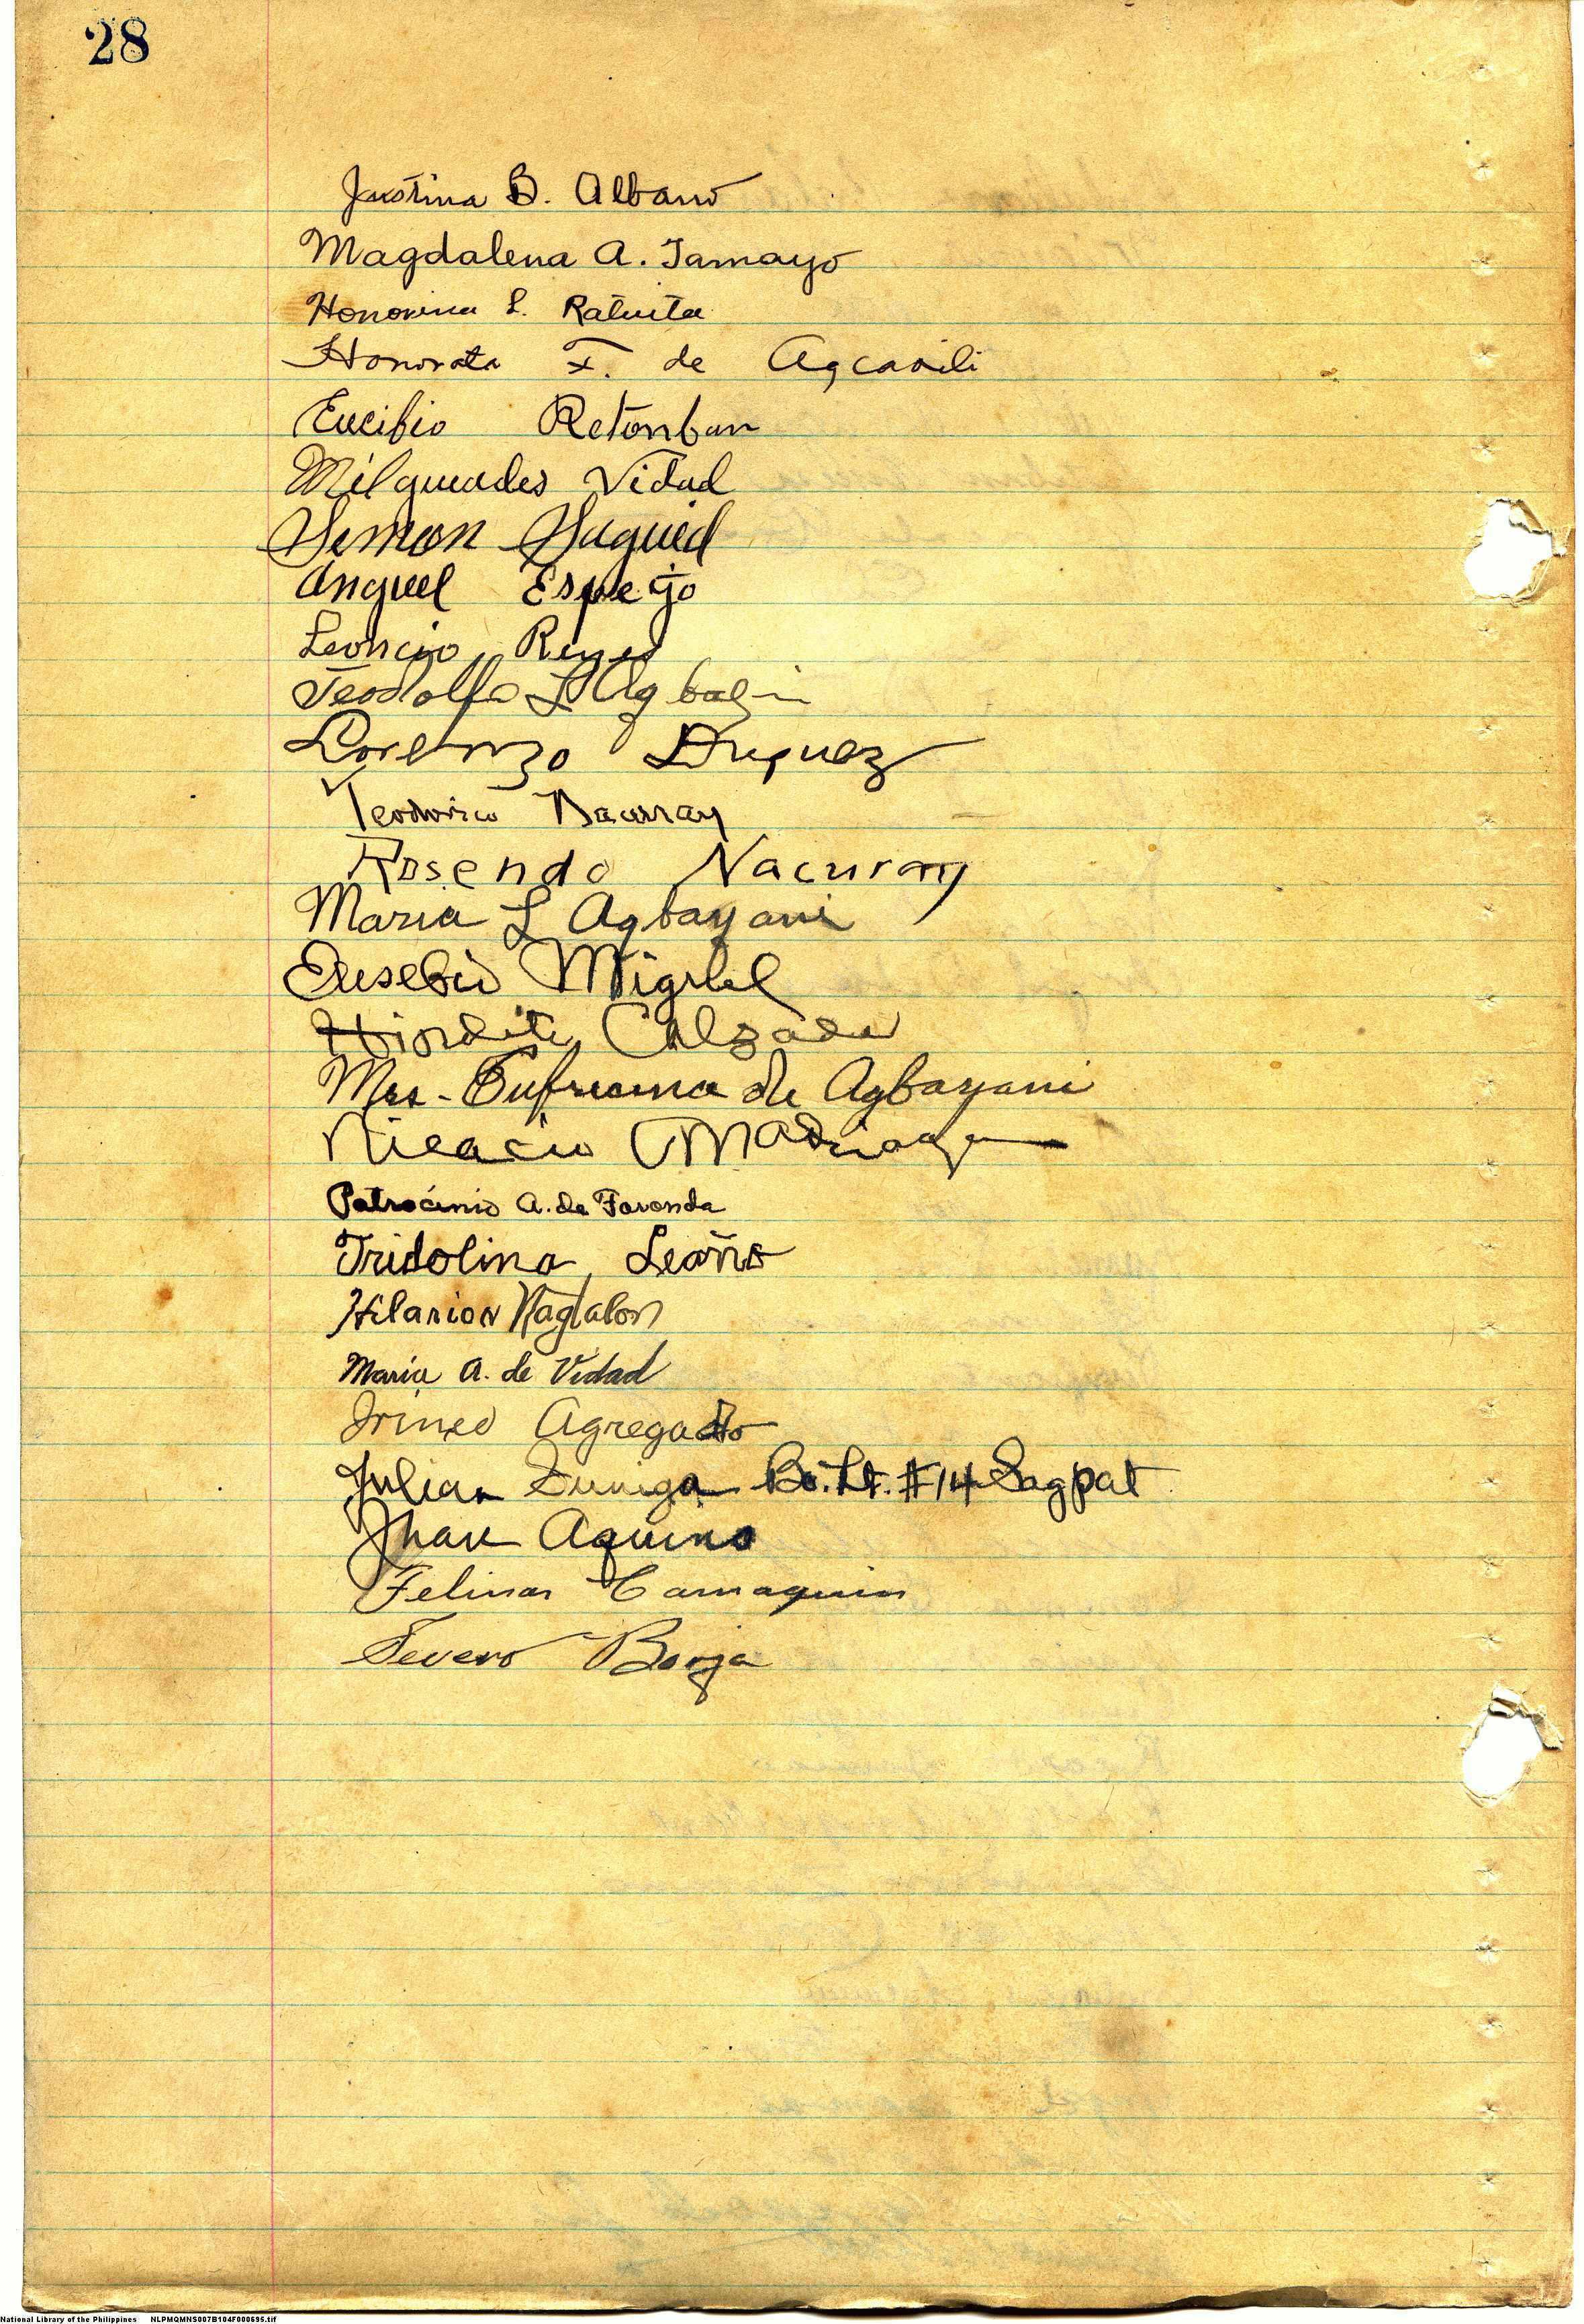 28
Justina B. Albano
Magdalena A. Tamayo
Honorina L. Ratuita
Honorata F. de Agcaoili
Eucibio Retonban
Milquiades Vidad
Simon Saguid
Anguel Espejo
Leoncio Reyes
Teodolfo L Agbag
Lorenzo Druquez
Teodorico Nacurray
Rosendo Nacuray
Maria L Agbayani
Eusebio Miguel
Calzada
Mrs. Eufrucina de Agbayani
Madriaga
Patrocinio A. de Faronda
Fridolina Leaño
Hilarion Nagtalon
Maria A. de Vidad
Irineo Agregado
Julian Zuniga Bo. Lt. #14 Sagpat
Jhan Aquino
Felinar Camaquin
Severo Borja
National Library of the Philippines NLPMQMNS007B104F000695.tif